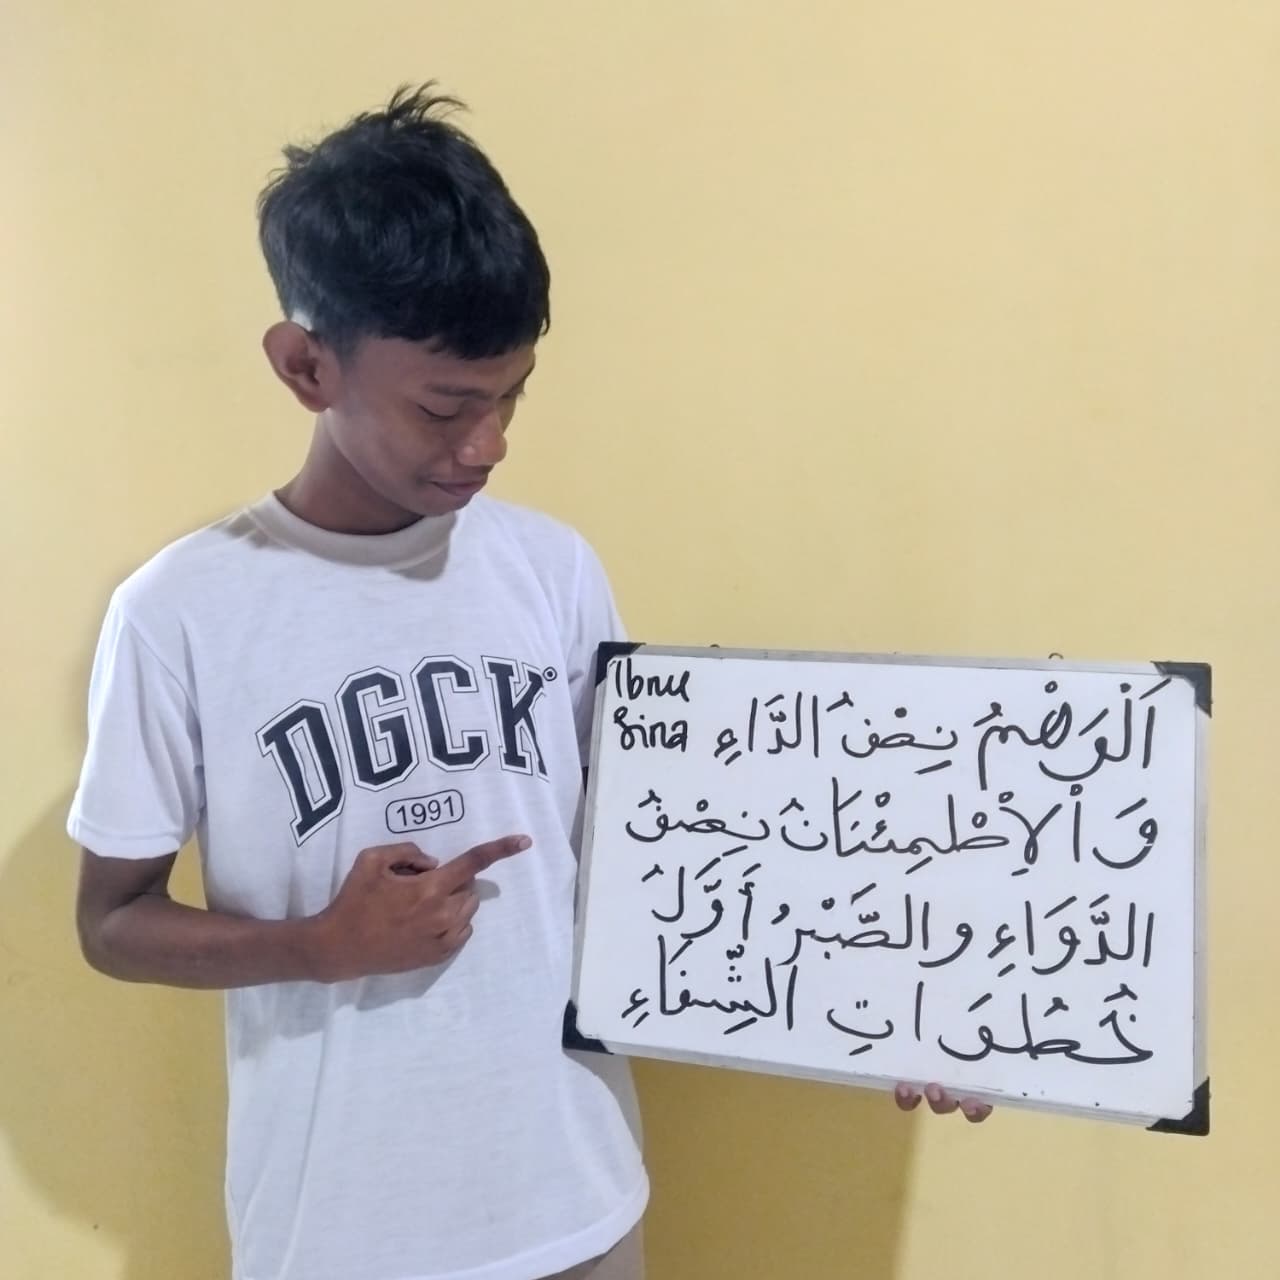 DGCK
1991
Ibnu
Sina
اَلْوَهْمُ نِصْفُ الدَّاءِ
وَ اْلاِطْمِئْنَانُ نِصْفُ
الدَّوَاءِ والصَّبْرُ أَوَّلُ
خُطُوَاتِ الشِّفَاءِ